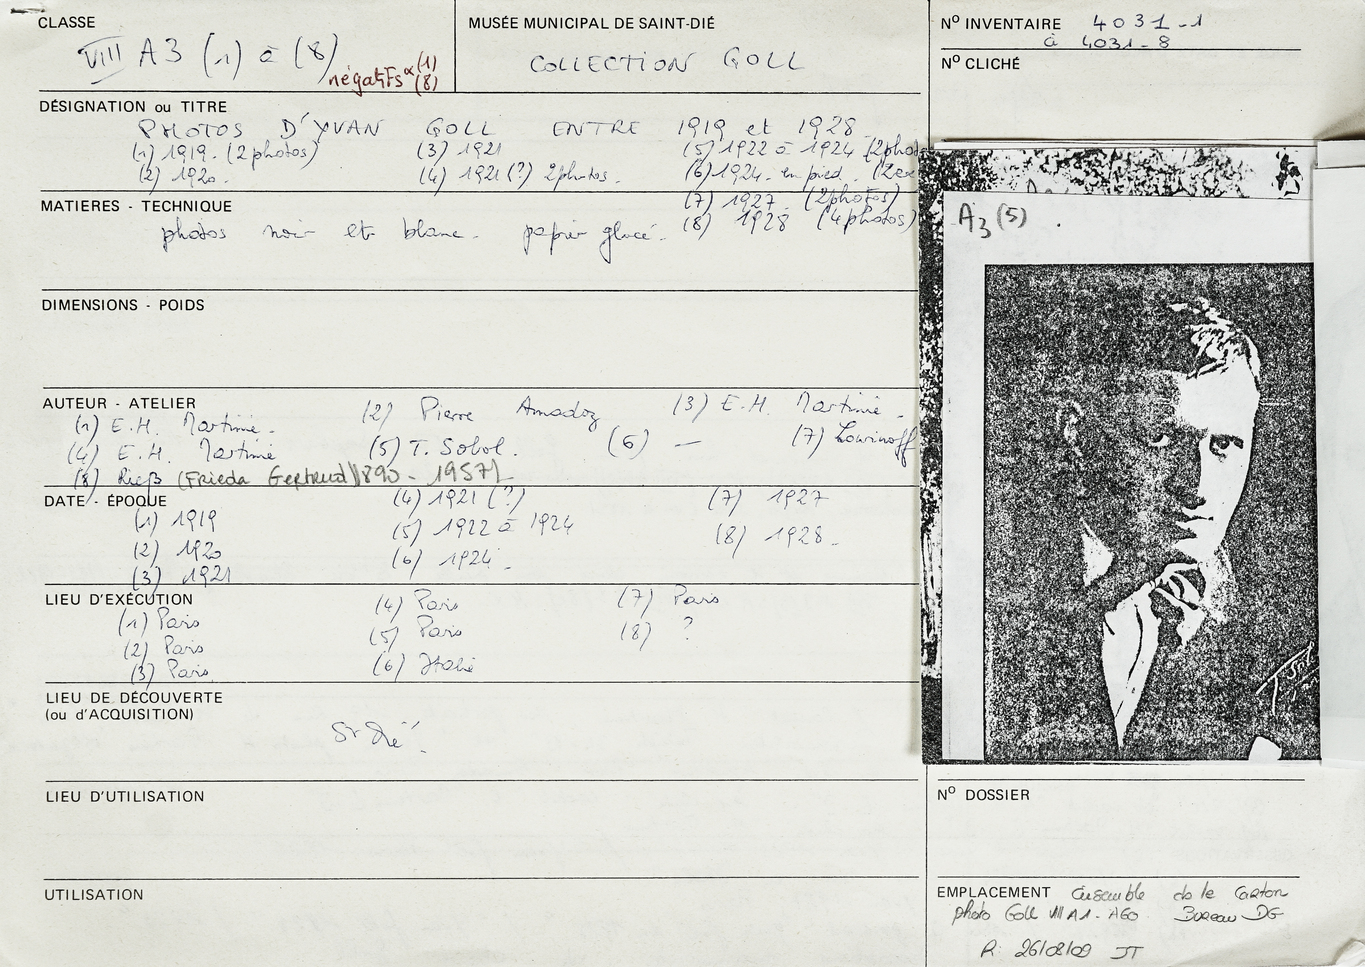 CLASSE
VIII A3 (1) à (8)
négatifs (1)
(8)
MUSÉE MUNICIPAL DE SAINT-DIÉ
COLLECTION GOLL
N° INVENTAIRE 4031-1
à 4031-8
N° CLICHÉ
DÉSIGNATION ou TITRE
PHOTOS D'YVAN GOLL ENTRE 1919 et 1928
(1) 1919. (2 photos) (3) 1921 (5) 1922 à 1924 (2 phot
(2) 1920. (4) 1921(?) 2 photos. (6) 1924. en pied. (2 ex
(7) 1927. (2 photos)
(8) 1928 (4 photos)
MATIERES - TECHNIQUE
photos noir et blanc. papier glacé.
A3 (5) .
DIMENSIONS - POIDS
AUTEUR - ATELIER
(1) E.H. Martinié. (2) Pierre Amadoz (3) E.H. Martinié.
(4) E.H. Martinié (5) T. Sobol. (6) — (7) Lowinoff
(8) Rieß (Frieda Gertrud) 1890 - 1957)
DATE - ÉPOQUE
(1) 1919 (4) 1921 (?) (7) 1927
(2) 1920 (5) 1922 à 1924 (8) 1928.
(3) 1921 (6) 1924.
LIEU D'EXÉCUTION
(1) Paris (4) Paris (7) Paris
(2) Paris (5) Paris (8) ?
(3) Paris (6) Italie
LIEU DE DÉCOUVERTE
(ou d'ACQUISITION)
St Dié.
LIEU D'UTILISATION
N° DOSSIER
UTILISATION
EMPLACEMENT Ensemble ds le Carton
photo Goll VIII A1 - A60 Bureau DG
R: 26/08/09 JT